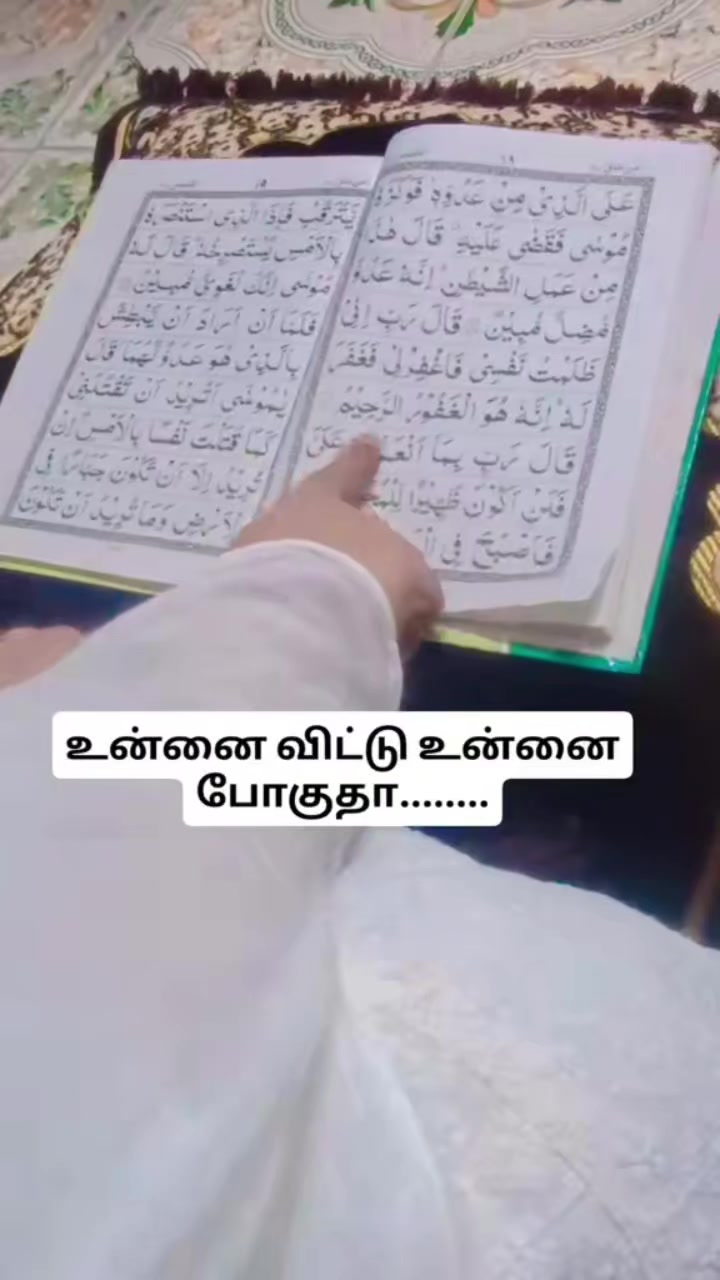 عَلَى الَّذِىْ مِنْ عَدُوِّهٖ فَوَكَزَهٗ
مُوْسٰى فَقَضٰى عَلَيْهِ قَالَ هٰذَا
مِنْ عَمَلِ الشَّيْطٰنِ اِنَّهٗ عَدُوٌّ
مُّضِلٌّ مُّبِيْنٌ قَالَ رَبِّ اِنِّىْ
ظَلَمْتُ نَفْسِىْ فَاغْفِرْلِىْ فَغَفَرَ
لَهٗ اِنَّهٗ هُوَ الْغَفُوْرُ الرَّحِيْمُ
قَالَ رَبِّ بِمَا عَلَىَّ
فَلَنْ اَكُوْنَ ظَهِيْرًا
فَاَصْبَحَ فِى
يَّتَرَقَّبُ فَاِذَا الَّذِى اسْتَنْصَرَهٗ
بِالْاَمْسِ يَسْتَصْرِخُهٗ قَالَ لَهٗ
مُوْسٰى اِنَّكَ لَغَوِىٌّ مُّبِيْنٌ
فَلَمَّا اَنْ اَرَادَ اَنْ يَّبْطِشَ
بِالَّذِىْ هُوَ عَدُوٌّ لَّهُمَا قَالَ
يٰمُوْسٰى اَتُرِيْدُ اَنْ تَقْتُلَنِىْ
كَمَا قَتَلْتَ نَفْسًا بِالْاَمْسِ اِنْ
تُرِيْدُ اِلَّا اَنْ تَكُوْنَ جَبَّارًا فِى
الْاَرْضِ وَمَا تُرِيْدُ اَنْ تَكُوْنَ
உன்னை விட்டு உன்னை
போகுதா........